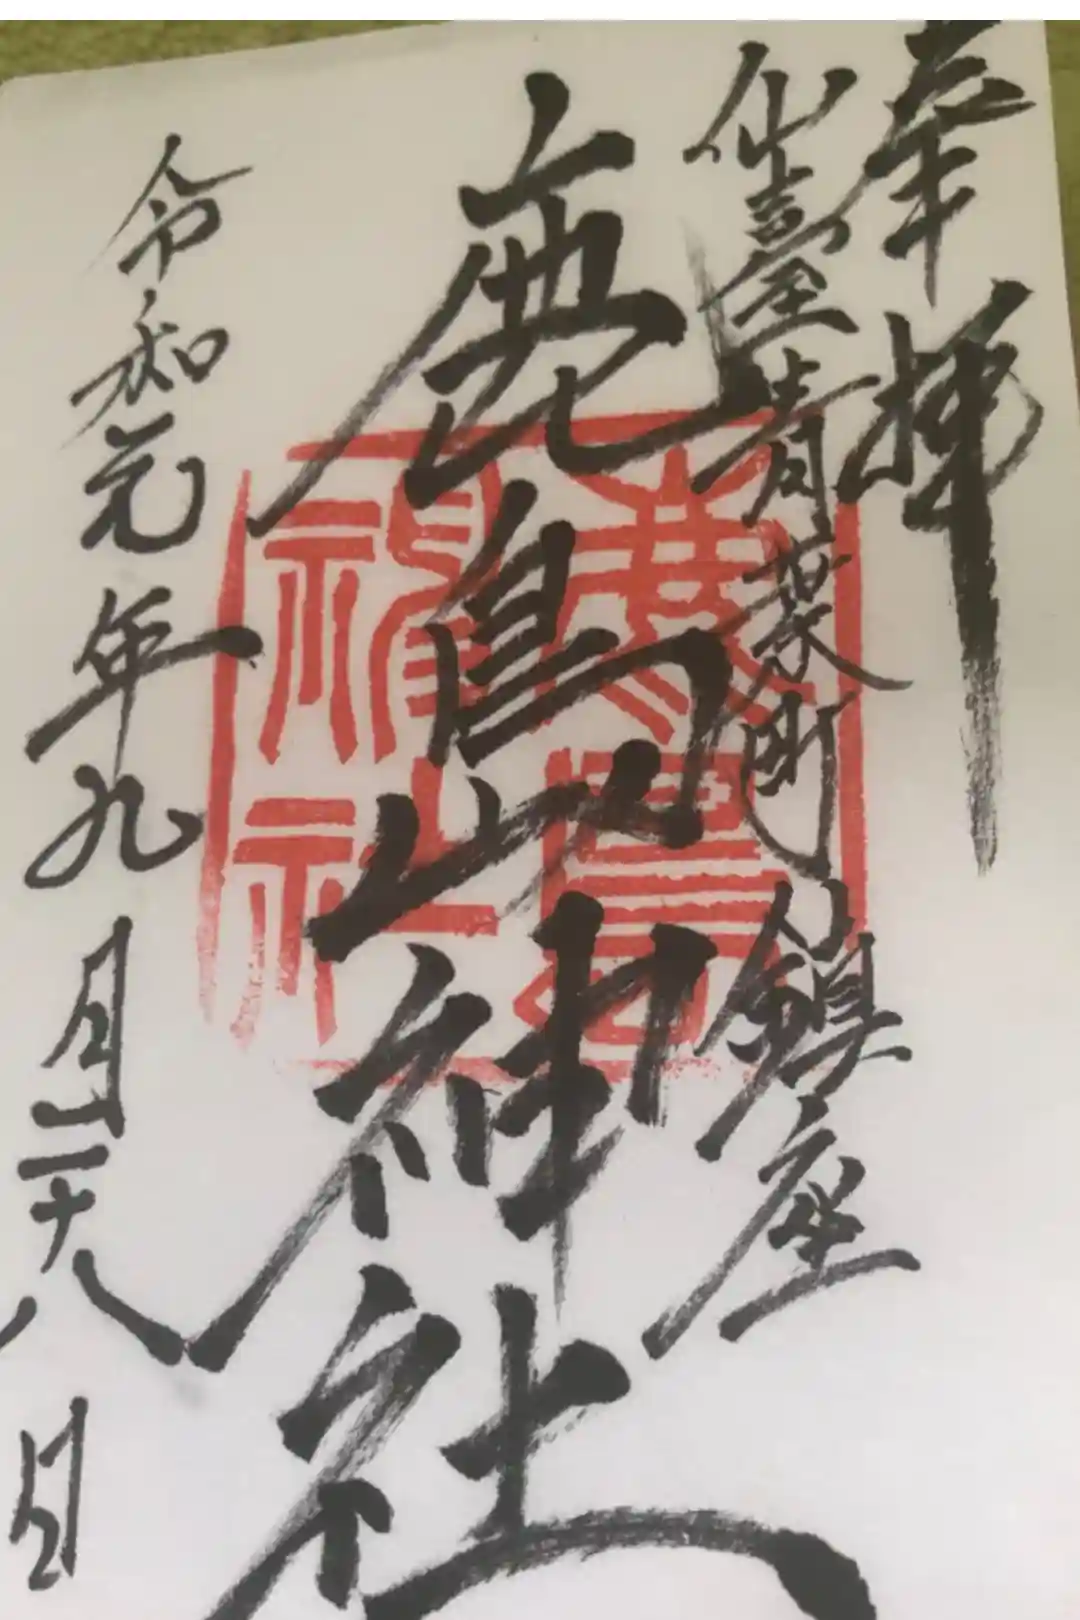 奉拝
仙臺青葉町鎮座
鹿島神社
鹿島神社
令和元年九月二十八日